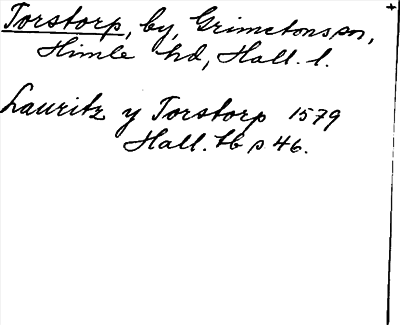 Torstorp, by, Grimetons sn,
Himle hd, Hall. l.
Lauritz y Torstorp 1579
Hall. tb s 46.